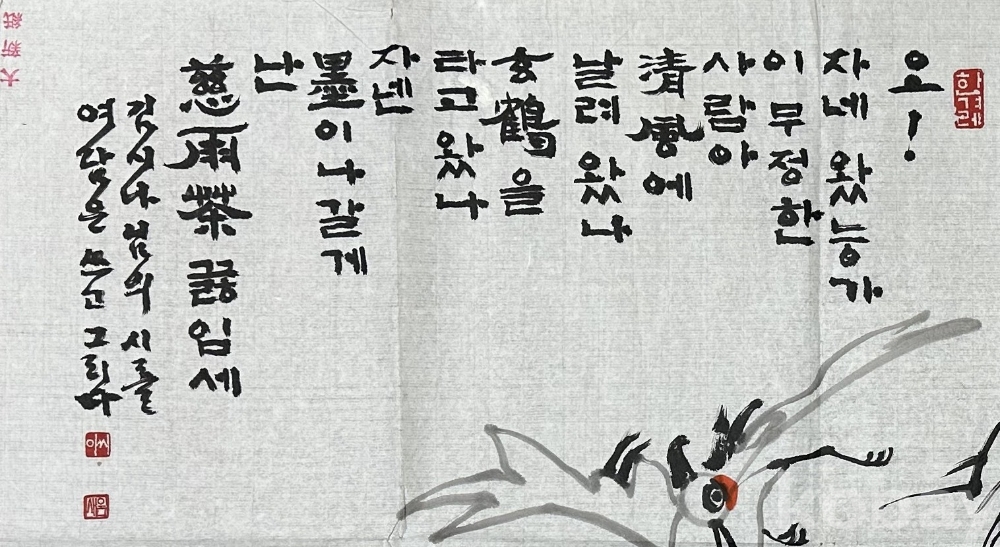 오!
자네 왔능가
이 무정한
사람아
清風에
날려 왔나
玄鶴을
타고 왔나
자넨
墨이나 갈게
난
慈雨茶 끓임세
김시나님의 시를
여담은 쓰고 그리다
大新紙